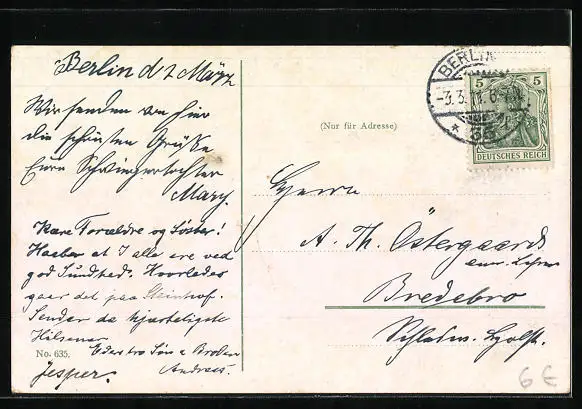 Berlin d 2 März
Wir senden von hier
die schönsten Grüße
Eure Schwiegertochter
Mary.
Kære Forældre og Søster!
Haaber at I alle ere ved
god Sundhed. Hvorledes
gaar det paa Steinhof.
Sender da hjærteligste
Hilsener
Eders tro Søn & Broder
Andreas.
No. 635.
Jesper.
(Nur für Adresse)
BERLIN
-3.3.11. 6-7 N.
* 65
5 5
DEUTSCHES REICH
Herrn
A. Th. Östergaard
em. Lehrer
Bredebro
Schlesw. Holst.
6 €